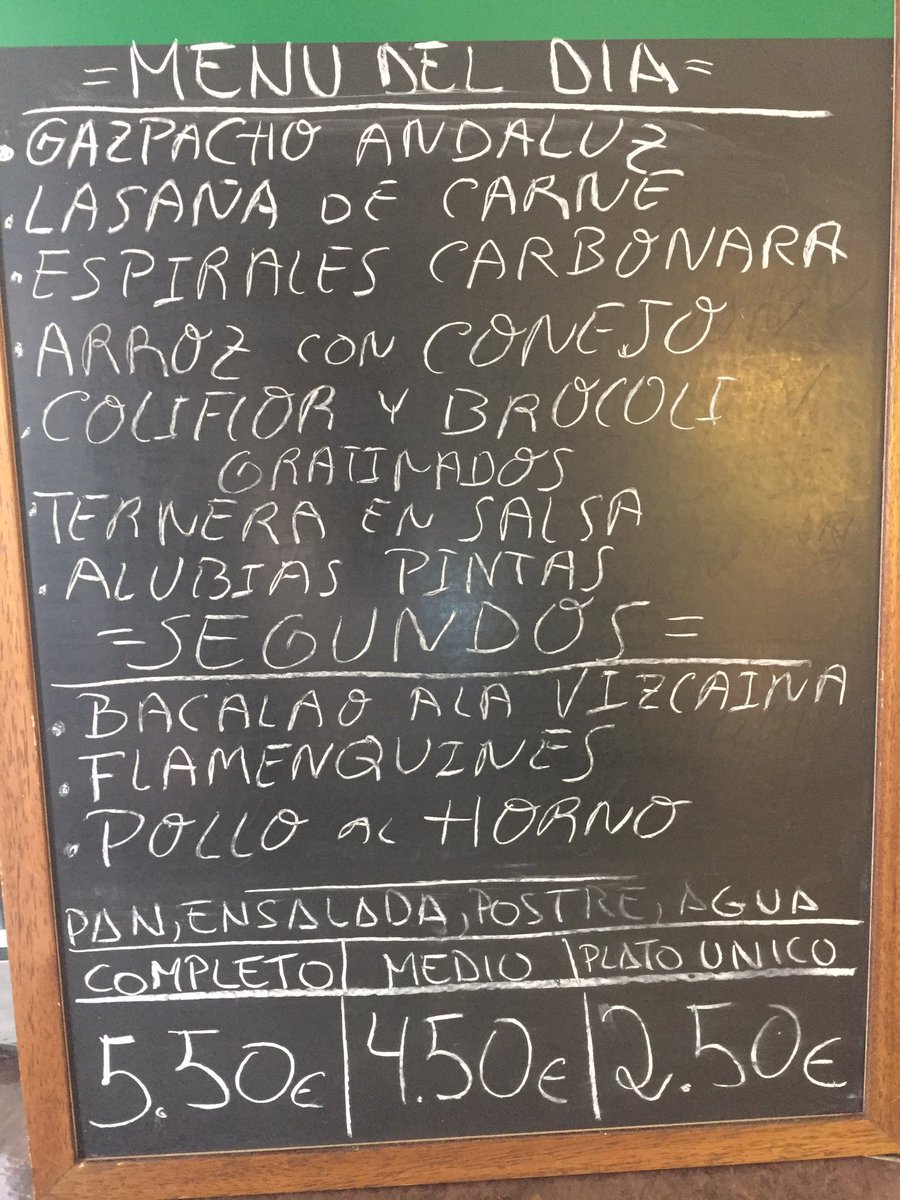 =MENU DEL DIA=
.GAZPACHO ANDALUZ
.LASAÑA DE CARNE
.ESPIRALES CARBONARA
.ARROZ CON CONEJO
.COLIFLOR Y BROCOLI
GRATINADOS
.TERNERA EN SALSA
.ALUBIAS PINTAS
=SEGUNDOS=
.BACALAO A LA VIZCAINA
.FLAMENQUINES
.POLLO AL HORNO
PAN, ENSALADA, POSTRE, AGUA
COMPLETO MEDIO PLATO UNICO
5.50€ 4.50€ 2.50€